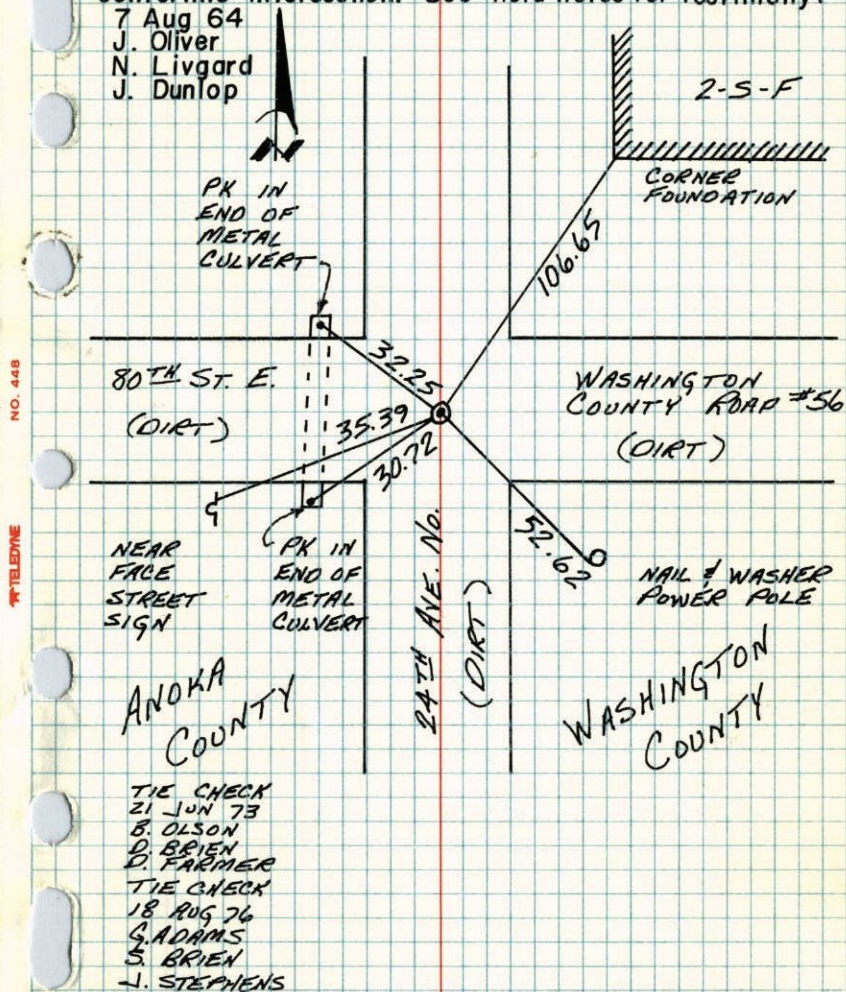 7 Aug 64
J. Oliver
N. Livgard
J. Dunlop
2-S-F
CORNER
FOUNDATION
PK IN
END OF
METAL
CULVERT
106.65
32.25
80TH ST. E.
(DIRT)
WASHINGTON
COUNTY ROAD #56
(DIRT)
35.39
30.72
NO. 448
TELEDYNE
52.62
NEAR
FACE
STREET
SIGN
PK IN
END OF
METAL
CULVERT
24TH AVE. No.
(DIRT)
NAIL & WASHER
POWER POLE
ANOKA
COUNTY
WASHINGTON
COUNTY
TIE CHECK
21 JUN 73
B. OLSON
D. BRIEN
D. FARMER
TIE CHECK
18 AUG 76
G. ADAMS
S. BRIEN
J. STEPHENS